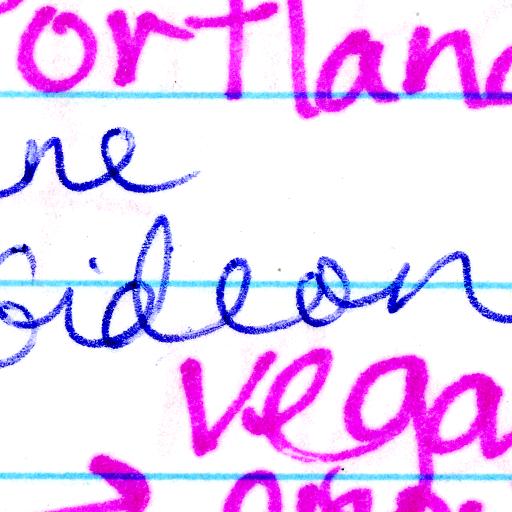 Portland
ne
Gideon
vega